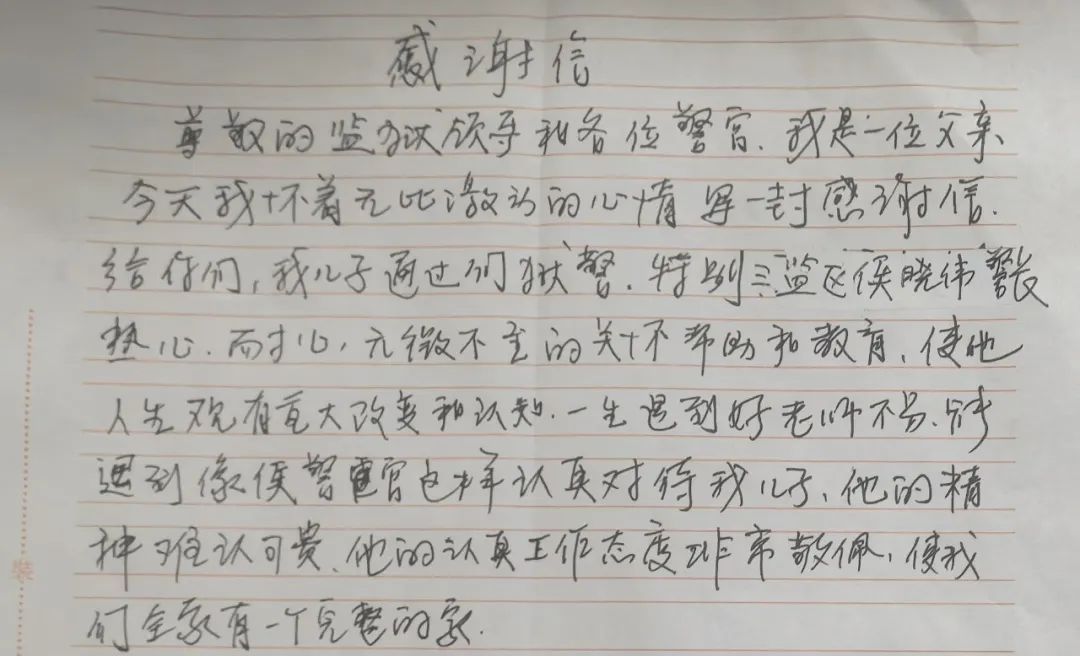 感谢信
尊敬的监狱领导和各位警官.我是一位父亲、
今天我怀着无比激动的心情写一封感谢信.
给你们,我儿子通过们狱警.特别三监区侯晓伟警长
热心.而才心,元微不至的关怀帮助和教育、使他
人生观有巨大改变和认知.一生遇到好老师不易.能
遇到像侯警官这样认真对待我儿子、他的精
神难认可贵、他的认真工作态度非常敬佩,使我
们全家有一个完整的家.
装